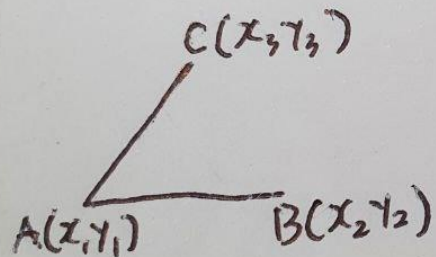 C(x₃ y₃)
A(x₁ y₁)
B(x₂ y₂)